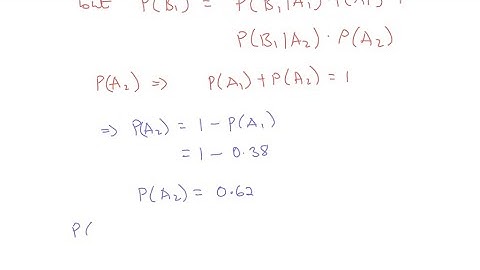 but P(B₁) = P(B₁|A₁) · P(A₁) +
P(B₁|A₂) · P(A₂)
P(A₂) ⇒ P(A₁) + P(A₂) = 1
⇒ P(A₂) = 1 – P(A₁)
= 1 – 0.38
P(A₂) = 0.62
P(